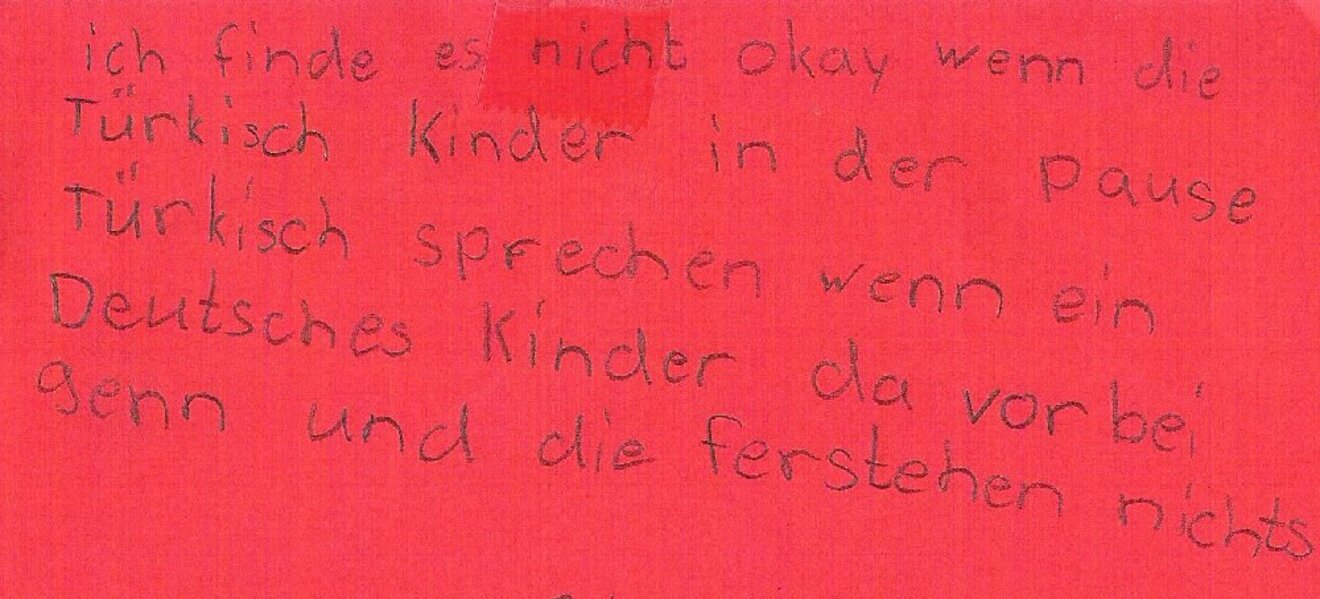 ich finde es nicht okay wenn die
Türkisch Kinder in der pause
Türkisch sprechen wenn ein
Deutsches Kinder da vorbei
genn und die ferstehen nichts